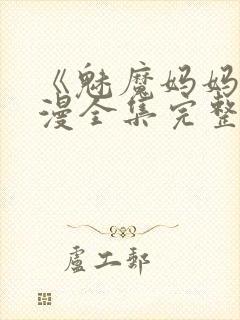 《魅魔妈妈
漫全集完整
卢工邮